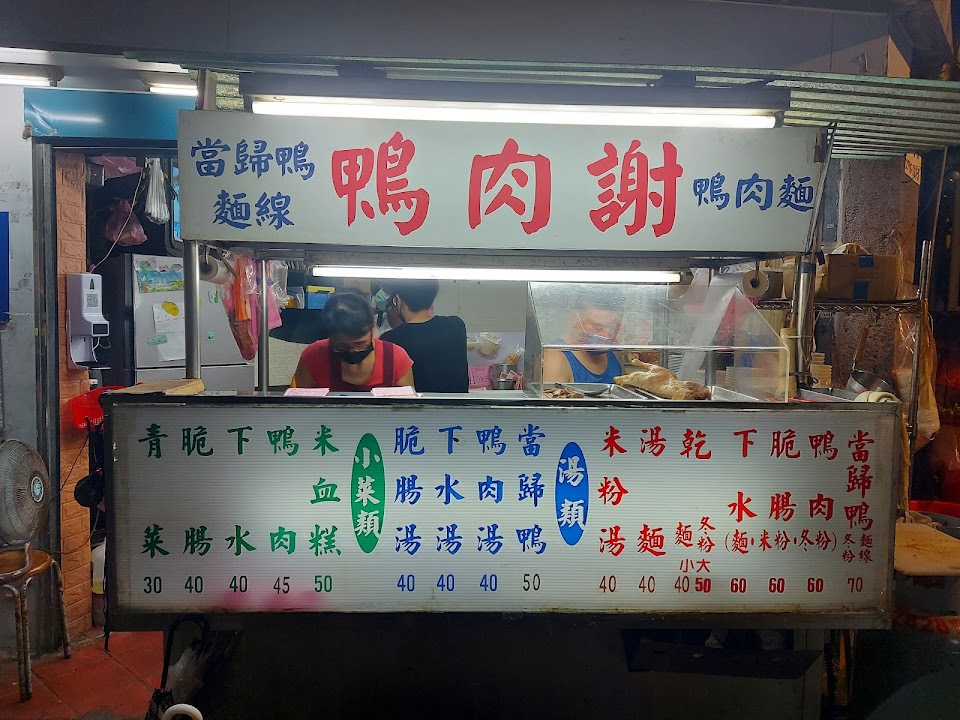 當歸鴨
麵線
鴨肉謝
鴨肉麵
當歸鴨 麵線 冬粉 70
鴨肉 60
脆腸 60
下水 60
(麵·米粉·冬粉)
乾麵 冬粉 小40 大50
湯麵 40
米粉湯 40
湯類
當歸鴨 50
鴨肉湯 40
下水湯 40
脆腸湯 40
小菜類
米血糕 50
鴨肉 45
下水 40
脆腸 40
青菜 30